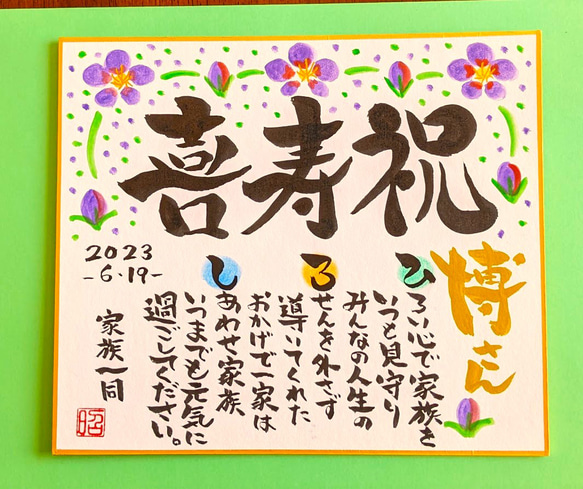 喜寿祝
博さん
ひろい心で家族を
いつも見守り
みんなの人生の
ろせんを外さず
導いてくれた
おかげで一家は
しあわせ家族
いつまでも元気に
過ごしてください。
2023
-6·19-
家族一同
昭